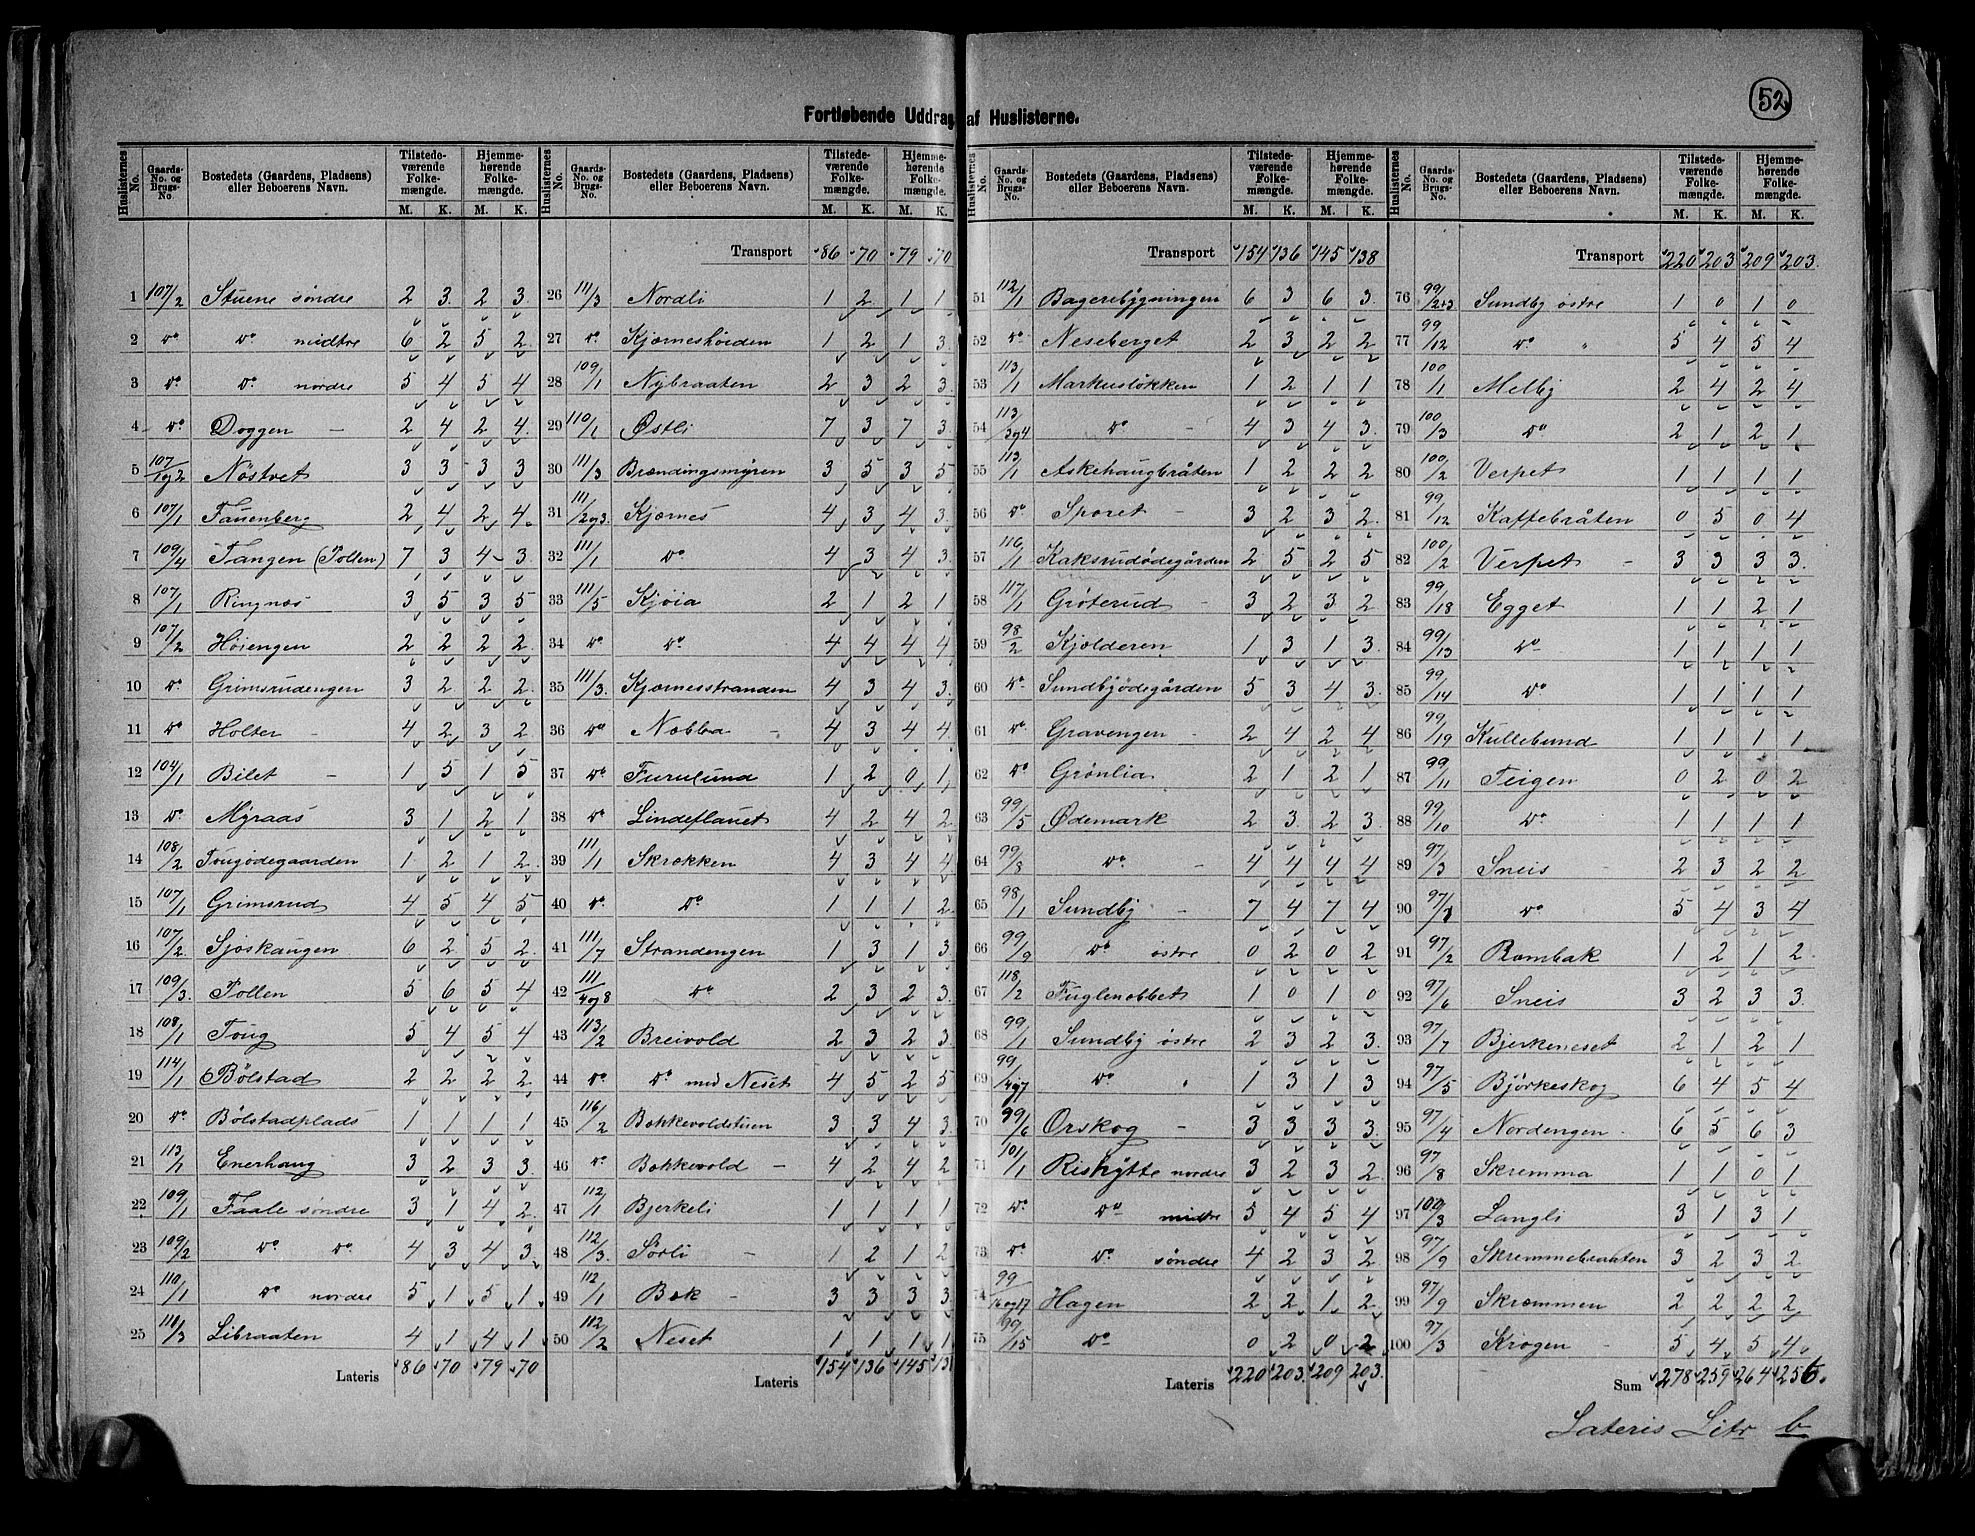 52
Fortløbende Uddrag af Huslisterne.
Huslisternes No. | Gaards-No. og Brugs-No. | Bostedets (Gaardens, Pladsens) eller Beboerens Navn. | Tilstedeværende Folkemængde. M. K. | Hjemmehørende Folkemængde. M. K.
1 107/2 Stuene søndre 2 3 2 3
2 Do Do midtre 6 2 5 2
3 Do Do nordre 5 4 5 4
4 Do Doggen 2 4 2 4
5 107/1og2 Nöstvet 3 3 3 3
6 107/1 Tauenberg 2 4 2 4
7 109/4 Tangen (Pollen) 7 3 4 3
8 107/1 Ringnæs 3 5 3 5
9 107/2 Høiengen 2 2 2 2
10 Do Grimsrudengen 3 2 2 2
11 Do Holter 4 2 3 2
12 104/1 Bilet 1 5 1 5
13 Do Myraas 3 1 2 1
14 108/2 Tougödegaarden 1 2 1 2
15 107/1 Grimsrud 4 5 4 5
16 107/2 Sjøskaugen 6 2 5 2
17 109/3 Pollen 5 6 5 4
18 108/1 Toug 5 4 5 4
19 114/1 Bölstad 2 2 2 2
20 Do Bölstadplads 1 1 1 1
21 113/1 Enerhaug 3 2 3 3
22 109/1 Faale søndre 3 1 4 2
23 109/2 Do Do 4 3 4 3
24 110/1 Do nordre 5 1 5 1
25 111/3 Libraaten 4 1 4 1
Lateris 86 70 79 70
Transport 86 70 79 70
26 111/3 Nordli 1 2 1 1
27 Do Kjærneshøiden 1 2 1 3
28 109/1 Nybraaten 2 3 2 3
29 110/1 Østli 7 3 7 3
30 111/3 Brændingsmyren 3 5 3 5
31 111/2og3 Kjærnes 4 3 4 3
32 111/1 Do 4 3 4 3
33 111/5 Kjøia 2 1 2 1
34 Do Do 4 4 4 4
35 111/3 Kjærnesstranden 4 3 4 3
36 Do Nabba 4 3 4 4
37 Do Furulund 1 2 0 1
38 Do Lindeflauet 4 2 4 2
39 111/1 Skrækken 4 3 4 4
40 Do Do 1 1 1 2
41 111/7 Strandengen 1 3 1 3
42 111/4og8 Do 2 3 2 3
43 113/2 Breivold 2 3 2 3
44 Do Do med Neset 4 5 2 5
45 116/2 Bækkevoldstuen 3 3 4 3
46 Do Bækkevold 4 2 4 2
47 112/1 Bjerkeli 1 1 1 1
48 112/3 Sörli 1 2 1 2
49 112/1 Bæk 3 3 3 3
50 112/2 Neset 1 1 1 1
Lateris 154 136 145 13
Transport 154 136 145 138
51 112/1 Bagerebygningen 6 3 6 3
52 Do Neseberget 2 3 2 2
53 113/1 Markusløkken 1 2 1 1
54 113/3og4 Do 4 3 4 3
55 113/1 Askehaugbråten 1 2 2 2
56 Do Sporet 3 2 3 2
57 116/1 Kaksrudødegården 2 5 2 5
58 117/1 Grøterud 3 2 3 2
59 98/2 Kjølderen 1 3 1 3
60 Do Sundbyödegården 5 3 4 3
61 Do Gravengen 2 4 2 4
62 Do Grønlia 2 1 2 1
63 99/5 Ødemark 2 3 2 3
64 99/8 Do 4 4 4 4
65 98/1 Sundby 7 4 7 4
66 99/9 Do östre 0 2 0 2
67 118/2 Fuglenebbet 1 0 1 0
68 99/1 Sundby østre 2 3 2 3
69 99/4og7 Do " 1 3 1 3
70 99/6 Orskog 3 3 3 3
71 101/1 Rishytte nordre 3 2 3 2
72 Do Do midtre 5 4 5 4
73 Do Do søndre 4 2 3 2
74 99/16og17 Hagen 2 2 1 2
75 99/15 Do 0 2 0 2
Lateris 220 203 209 203
Transport 220 203 209 203
76 99/2+3 Sundby östre 1 0 1 0
77 99/12 Do " 5 4 5 4
78 100/1 Melby 2 4 2 4
79 100/3 Do 2 1 2 1
80 100/2 Verpet 1 1 1 1
81 99/12 Kaffebråten 0 5 0 4
82 100/2 Verpet 3 3 3 3
83 99/18 Egget 1 1 2 1
84 99/13 Do 1 1 1 1
85 99/14 Do 1 1 1 1
86 99/19 Kullebund 1 1 1 1
87 99/11 Teigen 0 2 0 2
88 99/10 Do 1 1 1 1
89 97/3 Sneis 2 3 2 2
90 97/1 Do 5 4 3 4
91 97/2 Rombak 1 2 1 2
92 97/6 Sneis 3 2 3 3
93 97/7 Bjerkeneset 2 1 2 1
94 97/5 Björkeskog 6 4 5 4
95 97/4 Nordengen 6 5 6 3
96 97/8 Skremma 1 1 0 1
97 100/3 Langli 3 1 3 1
98 97/9 Skremmebraaten 3 2 3 2
99 97/9 Skræmmen 2 2 2 2
100 97/3 Krogen 5 4 5 4
Sum 278 259 264 256
Lateris Litr b